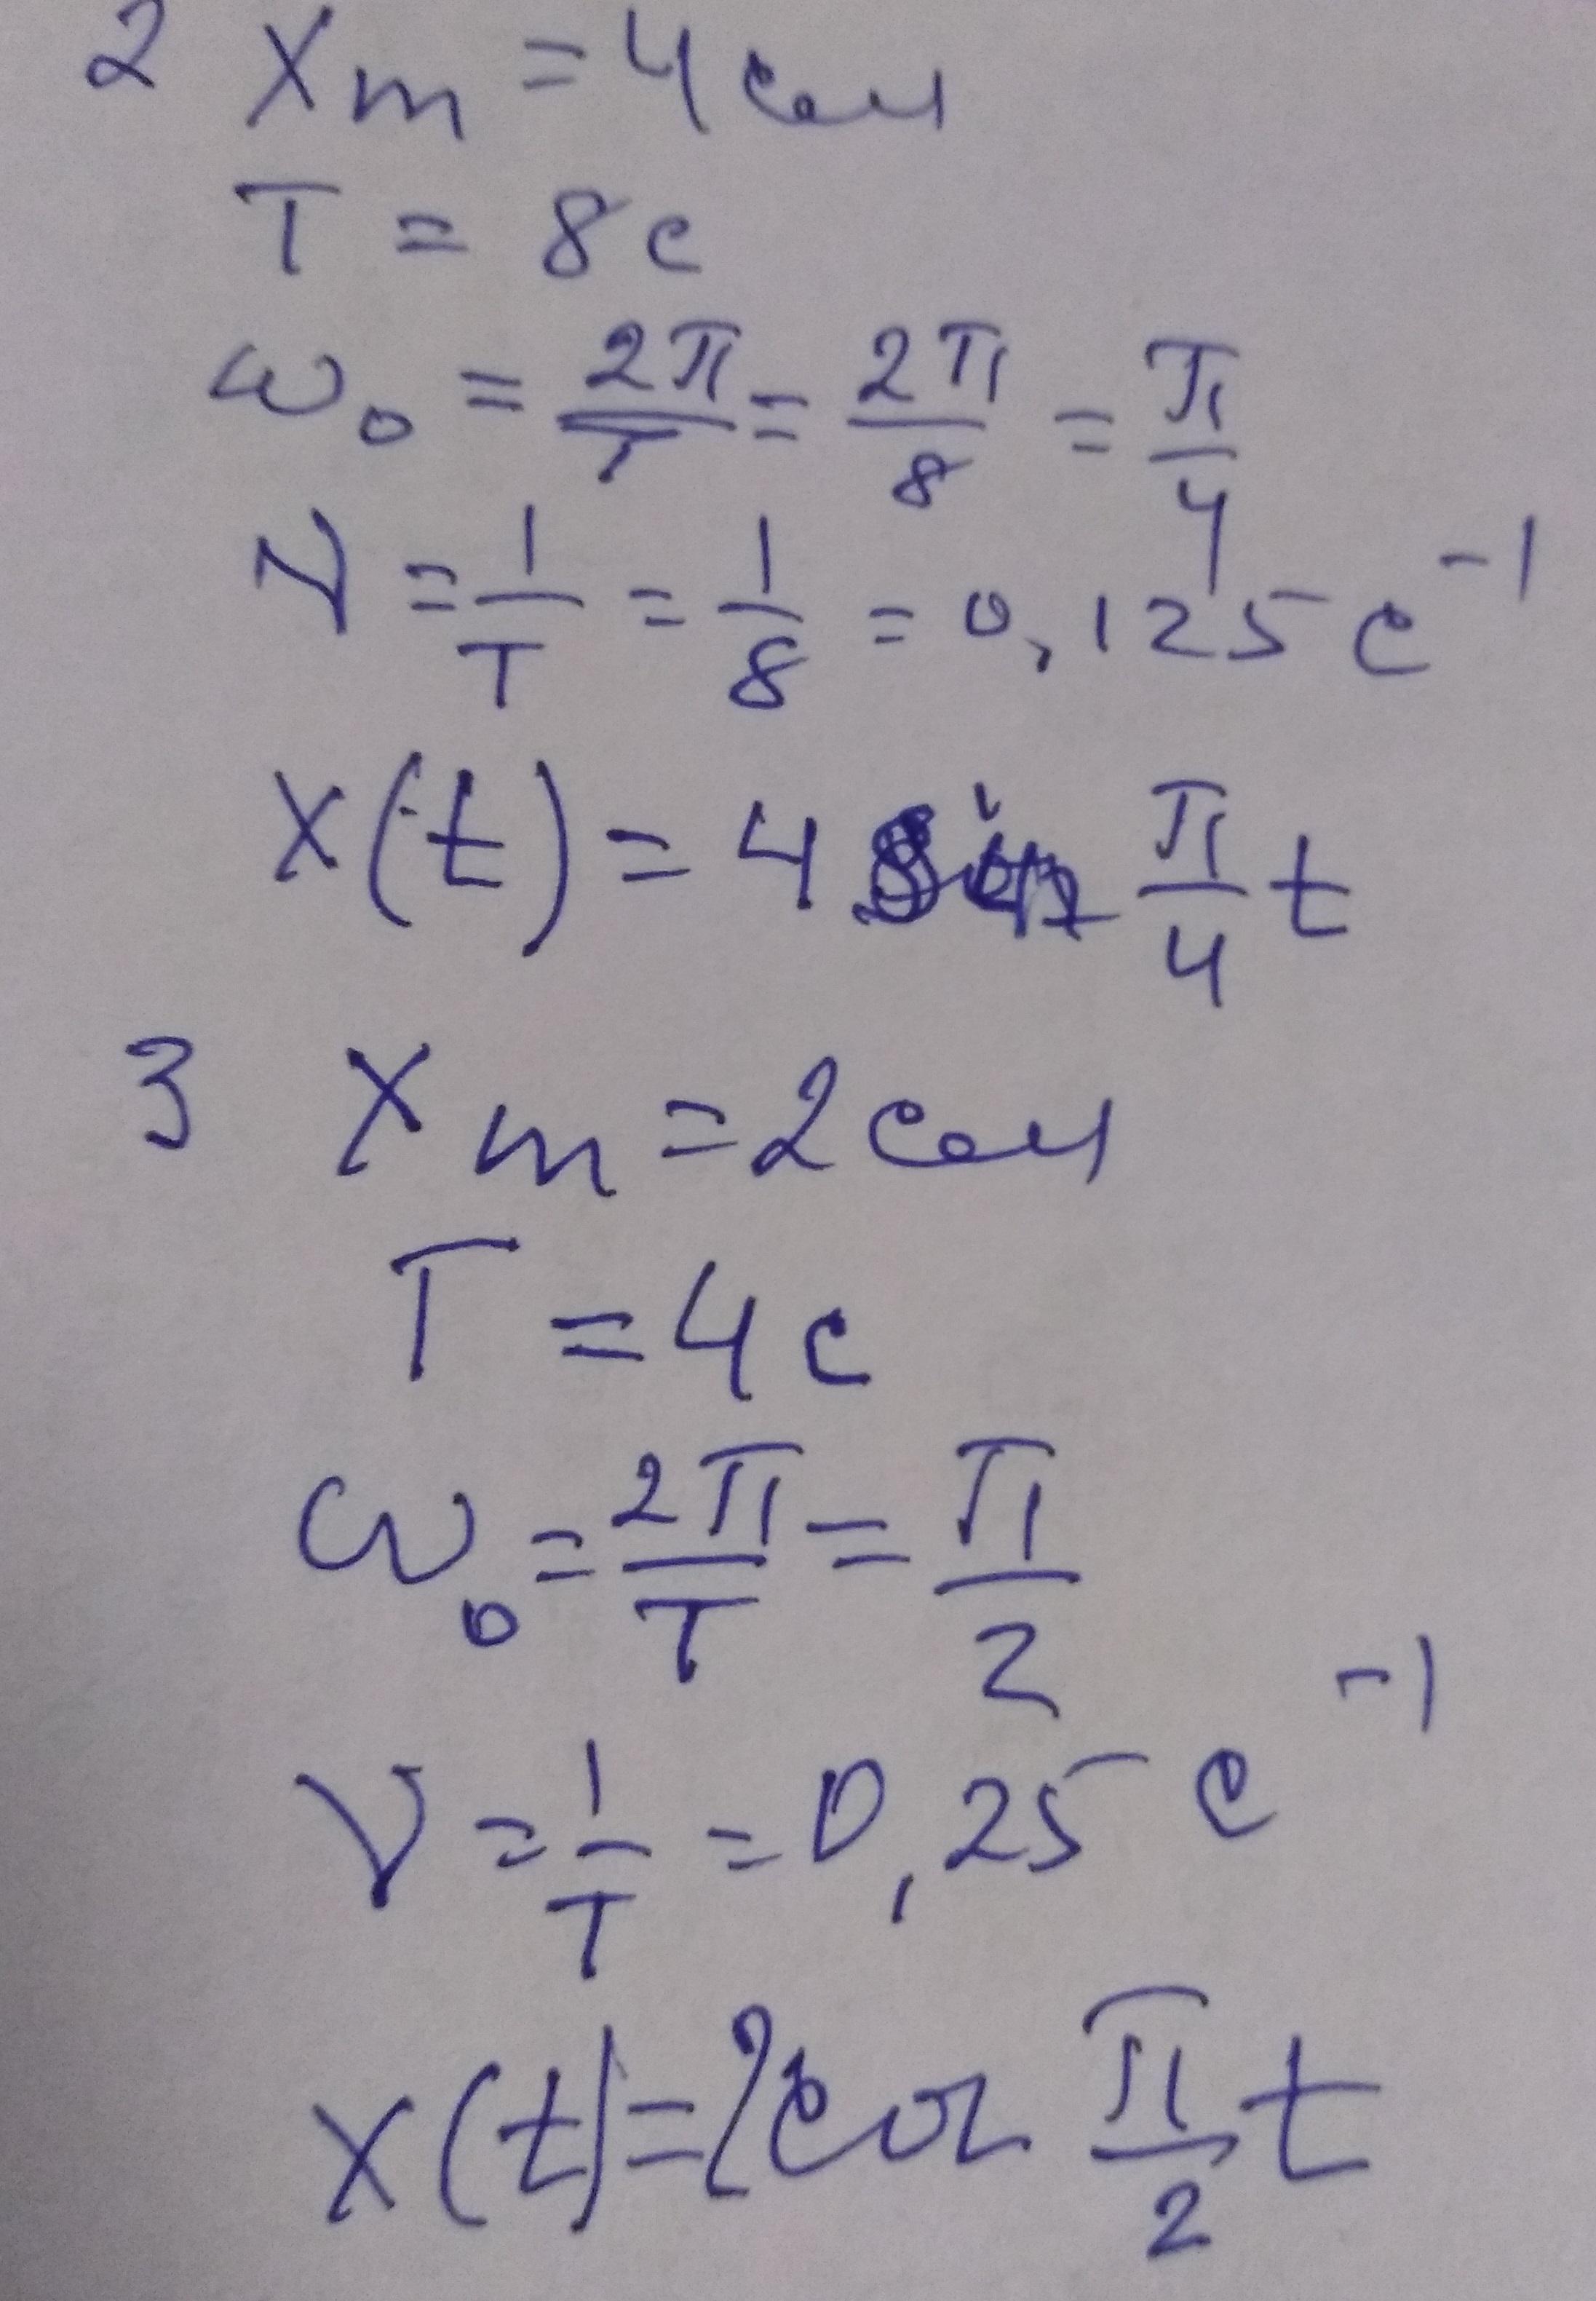 2 Xm = 4 см
T = 8 c
ω₀ = 2π/T = 2π/8 = π/4
ν = 1/T = 1/8 = 0,125 c⁻¹
x(t) = 4 sin π/4 t
3 Xm = 2 см
T = 4 c
ω₀ = 2π/T = π/2
ν = 1/T = 0,25 c⁻¹
x(t) = 2 cos π/2 t